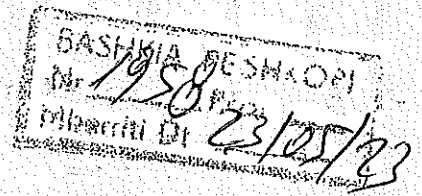 BASHKIA PESHKOPI
Nr 1958 Prot
Mberriti Dt 23/05/23